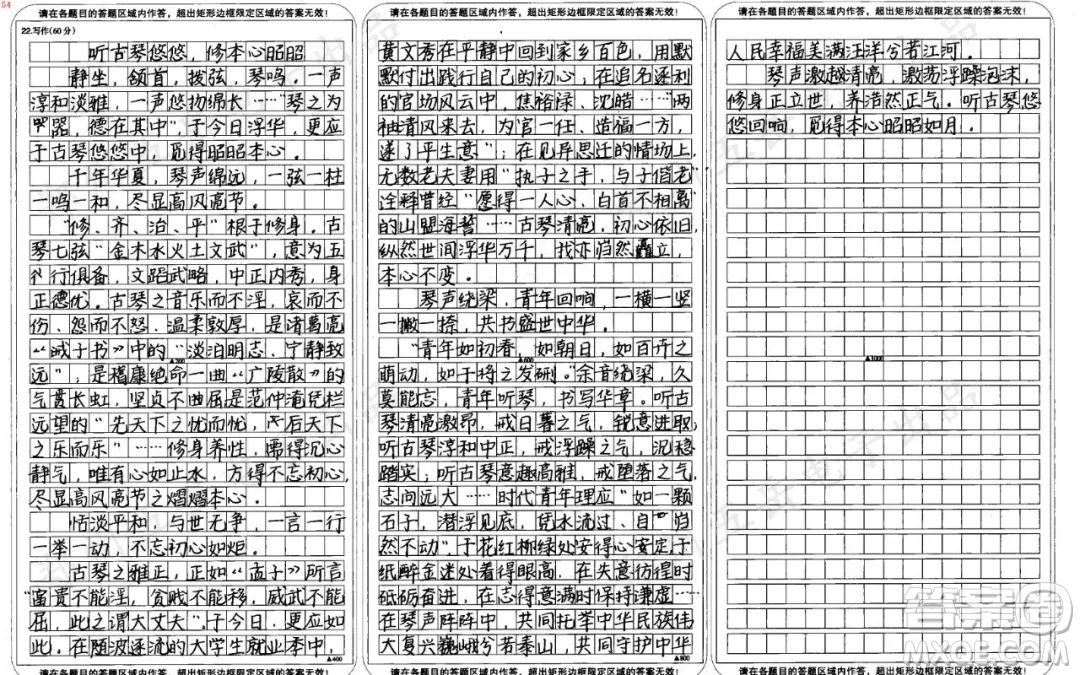 54
请在各题目的答题区域内作答，超出矩形边框限定区域的答案无效！
22.写作(60分)
听古琴悠悠，修本心昭昭
静坐，颔首，拨弦，琴鸣。一声
淳和淡雅，一声悠扬绵长……“琴之为
器，德在其中”，于今日浮华，更应
于古琴悠悠中，觅得昭昭本心。
千年华夏，琴声绵远，一弦一柱
一鸣一和，尽显高风亮节。
“修、齐、治、平”根于修身。古
琴七弦“金木水火土文武”，意为五
行俱备，文韬武略，中正内秀，身
正德优。古琴之音乐而不淫，哀而不
伤、怨而不怒、温柔敦厚，是诸葛亮
《诫子书》中的“淡泊明志、宁静致
▲200
远”；是嵇康绝命一曲《广陵散》的
气贯长虹，坚贞不曲屈是范仲淹凭栏
远望的“先天下之忧而忧，后天下
之乐而乐”……修身养性，需得沉心
静气，唯有心如止水，方得不忘初心，
尽显高风亮节之熠熠本心。
恬淡平和，与世无争，一言一行
一举一动，不忘初心如炬。
古琴之雅正，正如《孟子》所言
“富贵不能淫，贫贱不能移，威武不能
屈，此之谓大丈夫”。于今日，更应如
此。在随波逐流的大学生就业本中，
▲400
请在各题目的答题区域内作答，超出矩形边框限定区域的答案无效！
请在各题目的答题区域内作答，超出矩形边框限定区域的答案无效！
黄文秀在平静中回到家乡百色，用默
默付出践行自己的初心；在追名逐利
的官场风云中，焦裕禄、沈皓……“两
袖清风来去，为官一任、造福一方，
遂了平生意”；在见异思迁的情场上，
无数老夫妻用“执子之手，与子偕老”
诠释曾经“愿得一人心，白首不相离”
的山盟海誓……古琴清亮，初心依旧，
纵然世间浮华万千，我亦岿然矗立，
本心不变。
琴声绕梁，青年回响，一横一竖
一撇一捺，共书盛世中华。
“青年如初春，如朝日，如百卉之
▲600
萌动，如于将之发硎。”余音绕梁，久
莫能志，青年听琴，书写华章。听古
琴清亮激昂，戒日暮之气，锐意进取；
听古琴淳和中正，戒浮躁之气，沉稳
踏实；听古琴意趣高雅，戒堕落之气，
志向远大……时代青年理应“如一颗
石子，潜浮见底，凭水流过、自岿
然不动”。于花红柳绿处安得心安定于
纸醉金迷处着得眼高，在失意彷徨时
砥砺奋进，在志得意满时保持谦虚……
在琴声阵阵中，共同托举中华民族伟
大复兴巍峨兮若泰山，共同守护中华
▲800
请在各题目的答题区域内作答，超出矩形边框限定区域的答案无效！
请在各题目的答题区域内作答，超出矩形边框限定区域的答案无效！
人民幸福美满汪洋兮若江河。
琴声激越清亮，激荡浮躁泡沫，
修身正立世，养浩然正气。听古琴悠
悠回响，觅得本心昭昭如月。
▲1000
请在各题目的答题区域内作答，超出矩形边框限定区域的答案无效！
答案圈
MXQE.COM